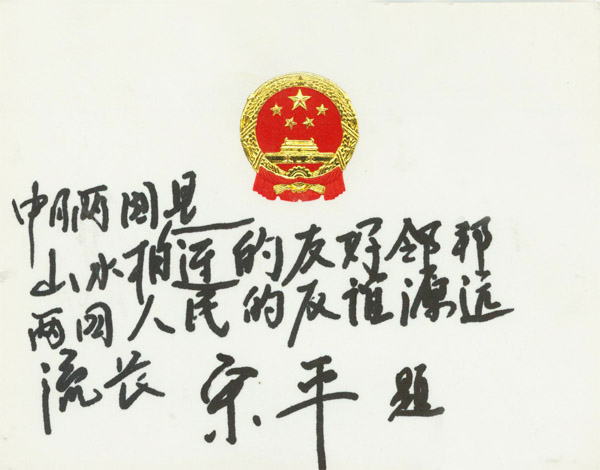 中两国是
山水相连的友好邻邦
两国人民的友谊源远
流长 宋平 题